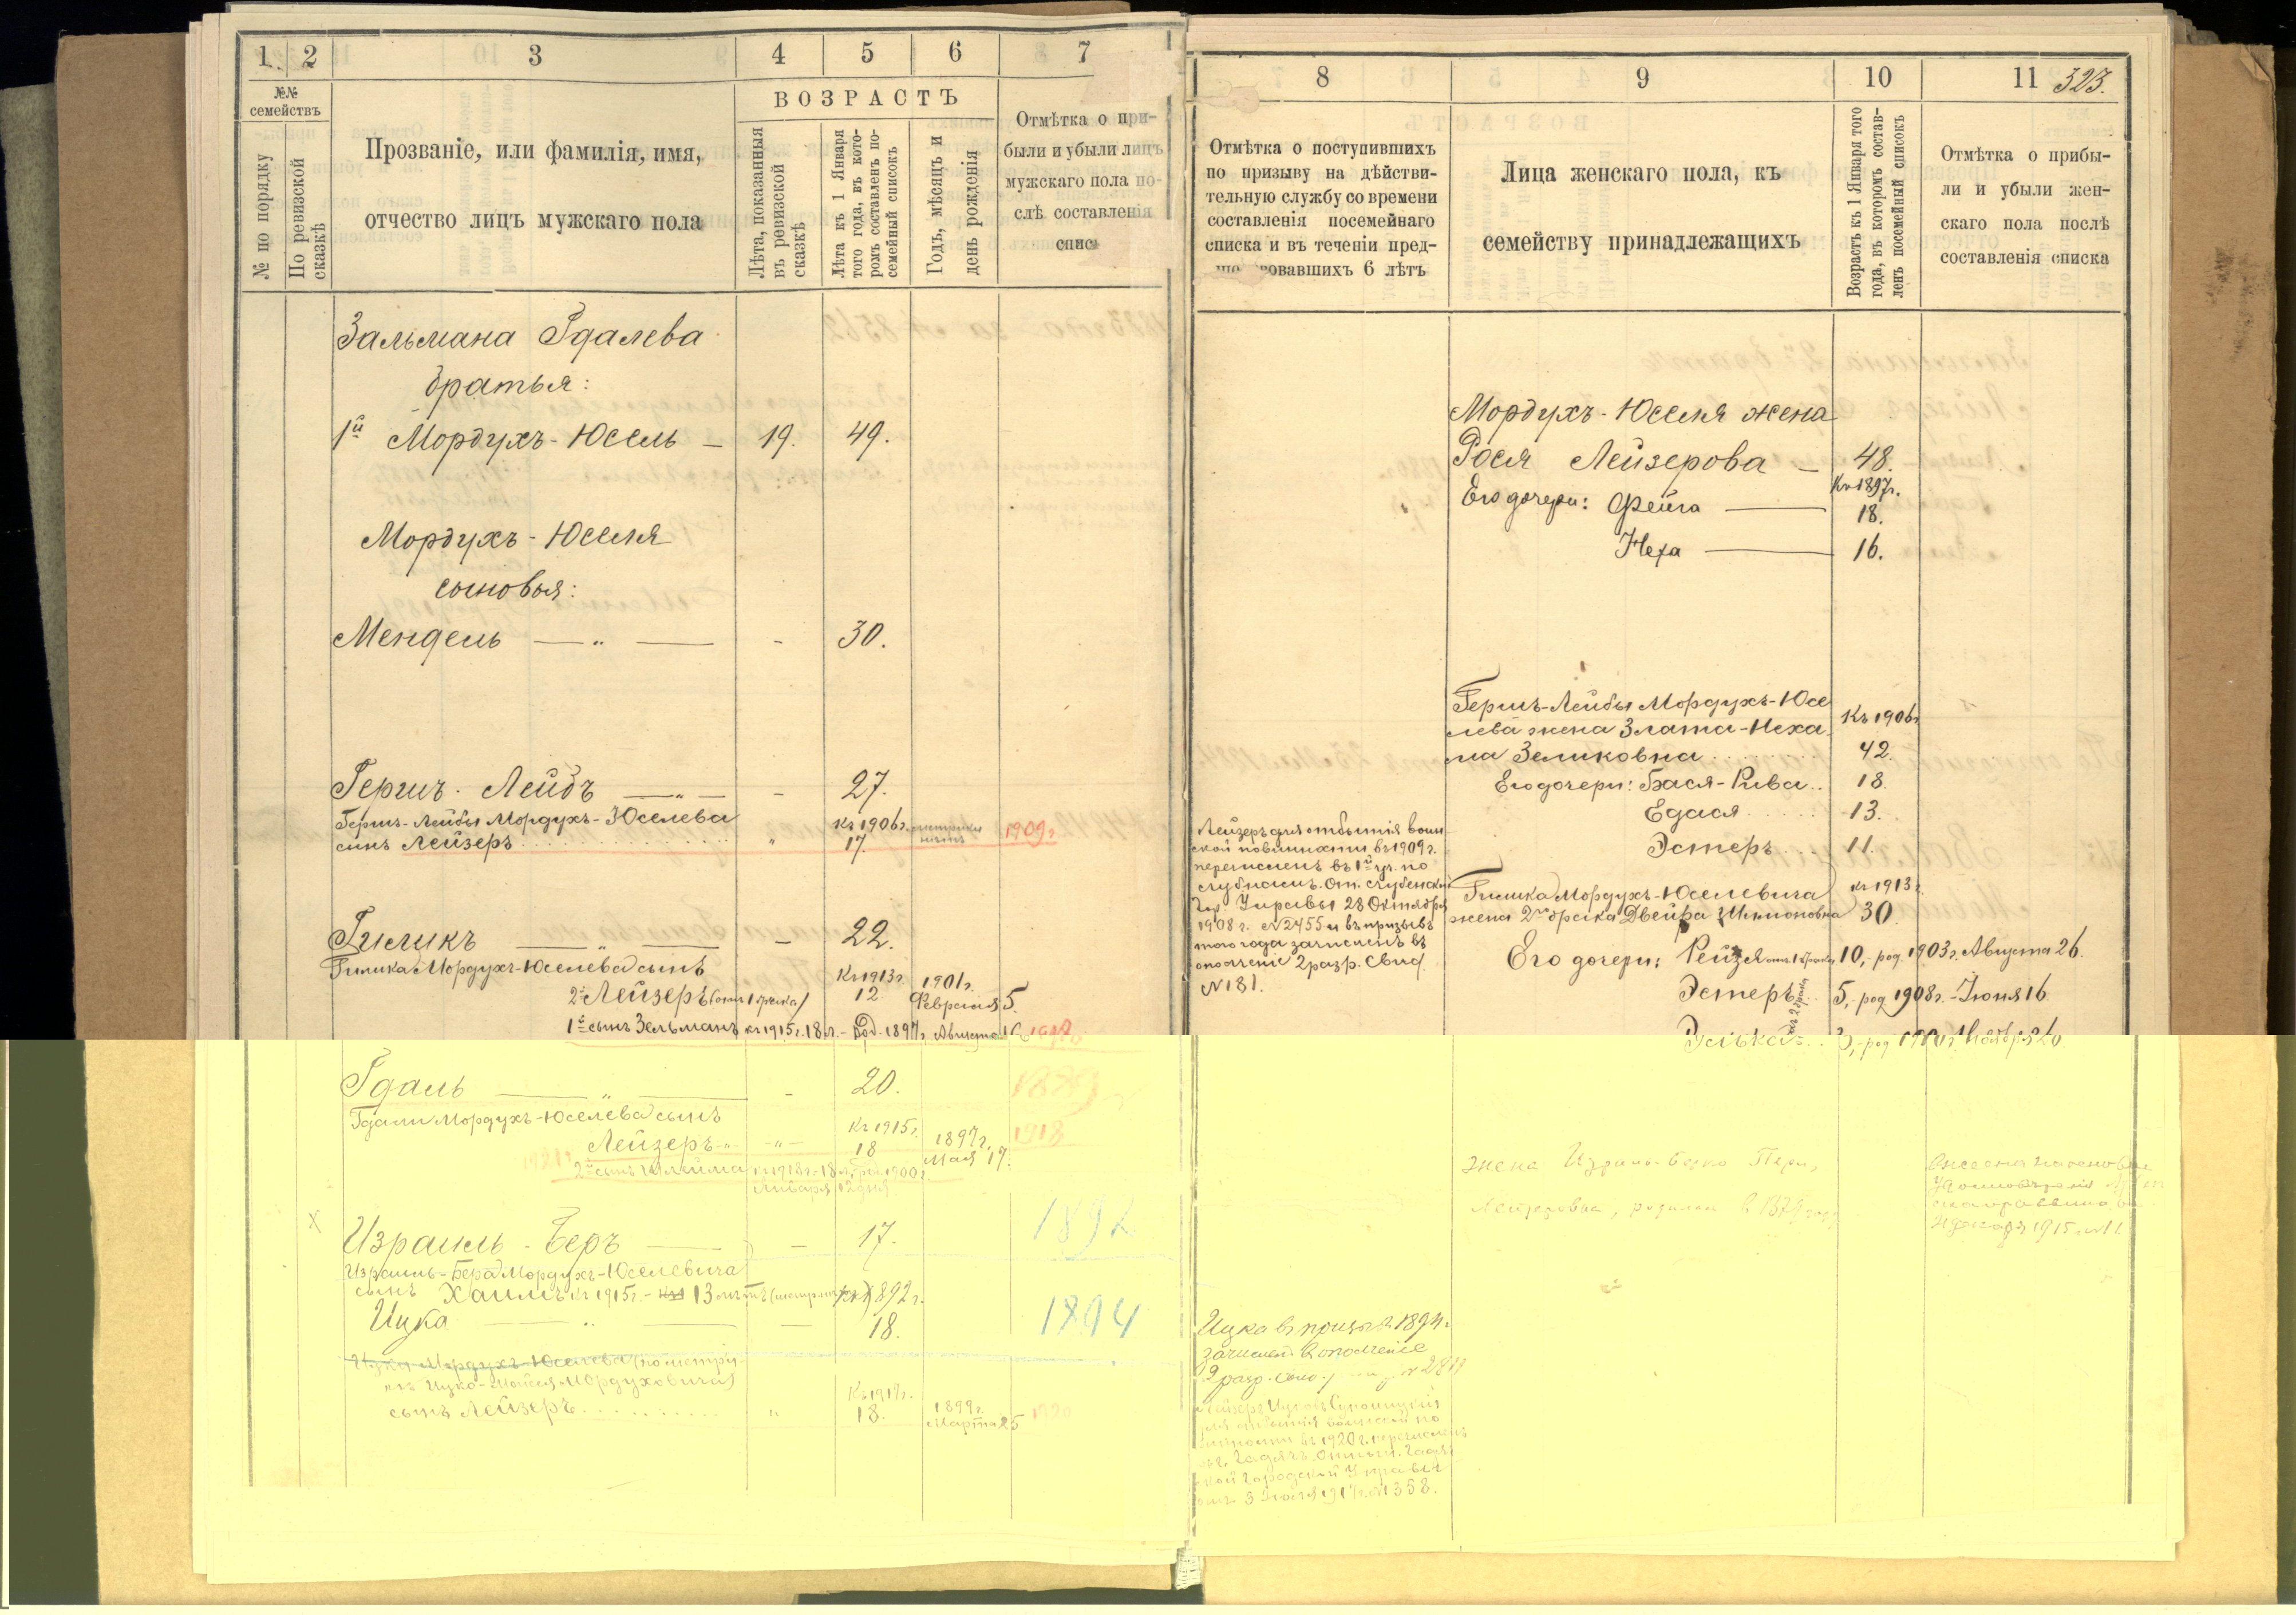 1 2 3 4 5 6 7
№№ семействъ
№ по порядку
По ревизской сказкѣ
Прозваніе, или фамилія, имя,
отчество лицъ мужскаго пола
ВОЗРАСТЪ
Лѣта, показанныя
въ ревизской
сказкѣ
Лѣта къ 1 Января
того года, въ кото-
ромъ составленъ по-
семейный списокъ
Годъ, мѣсяцъ и
день рожденія
Отмѣтка о при-
были и убыли лицъ
мужскаго пола по-
слѣ составленія
спис
Зальмана Гдалева
братья:
1й Мордухъ-Юсель — 19. 49.
Мордухъ-Юселя
сыновья:
Мендель — „ — - 30.
Гершъ-Лейбъ — „ — - 27.
Гершъ-Лейбы Мордухъ-Юселева Къ 1906г.
сынъ Лейзеръ „ 17. 1909г
Гиликъ — „ — - 22.
Гилика Мордухъ-Юселева сынъ Къ 1913г. 1901г.
2й Лейзеръ (отъ 1 брака) 12 Февраля 5.
1й сынъ Зельманъ къ 1915г. 18 л. - род. 1897г. Августа 16
Гдаль — „ — - 20. 1889
Гдали Мордухъ-Юселева сынъ Къ 1915г.
Лейзеръ -„- -„- 18 1897г. Мая 17. 1918
1921г 2й сынъ Шлейма къ 1918г. 18 л., род. 1900г.
Января 12 дня
Х Израиль-Беръ — - 17. 1892
Израиль-Бера Мордухъ-Юселевича
сынъ Хаимъ къ 1915г. - 13 1892г.
Ицка — „ — - 18. 1894
Ицки Мордухъ-Юселева (по метри-
Ицко- Мордуховича)
сынъ Лейзеръ „ Къ 1917г. 18. 1899г. Марта 25 1920
8 9 10 11 323.
Отмѣтка о поступившихъ
по призыву на дѣйстви-
тельную службу со времени
составленія посемейнаго
списка и въ теченіи пред-
вовавшихъ 6 лѣтъ
Лица женскаго пола, къ
семейству принадлежащихъ
Возрастъ къ 1 Января того
года, въ которомъ состав-
ленъ посемейный списокъ
Отмѣтка о прибы-
ли и убыли жен-
скаго пола послѣ
составленія списка
Мордухъ-Юселя жена
Рося Лейзерова — 48.
Къ 1897г.
Его дочери: Фейга — 18.
Неха — 16.
Гершъ-Лейбы Мордухъ-Юсе
лева жена Злата-Неха Къ 1906г
ма Зеликовна 42.
Его дочери: Бася-Рива.. 18.
Едася 13.
Эстеръ 11.
Лейзеръ для отбытія воин
ской повинности въ 1909г.
перечисленъ въ 1й уч. по
г. Лубнамъ. От. Лубенской
Гор. Управы 28 Октября
1908г. №2455 и въ призывъ
того года зачисленъ въ
ополченіе 2 разр. Свид.
№181.
Гилика Мордухъ-Юселевича къ 1913г
жена 2го брака Двейра Шимоновна 30.
Его дочери: Рейзя отъ 1 брака 10,- род. 1903г. Августа 26.
Эстеръ 5,- род. 1908г. - Іюня 16.
Эська 3,- род Ноября 26
жена Израиль-Берко
Лейзеровна, родилась в 1879 году
Внесена на основан
1915 №11.
Ицко въ призывѣ 1894г.
зачисленъ въ ополченіе
2 разр. Свид.
Лейзеръ Ицковъ
для отбытія воинской по
винности въ 1920г. перечисленъ
въ г. Гадячъ. Отнош. Гадяч
ской городской Управы
отъ 3 Іюля 1917г. №1358.